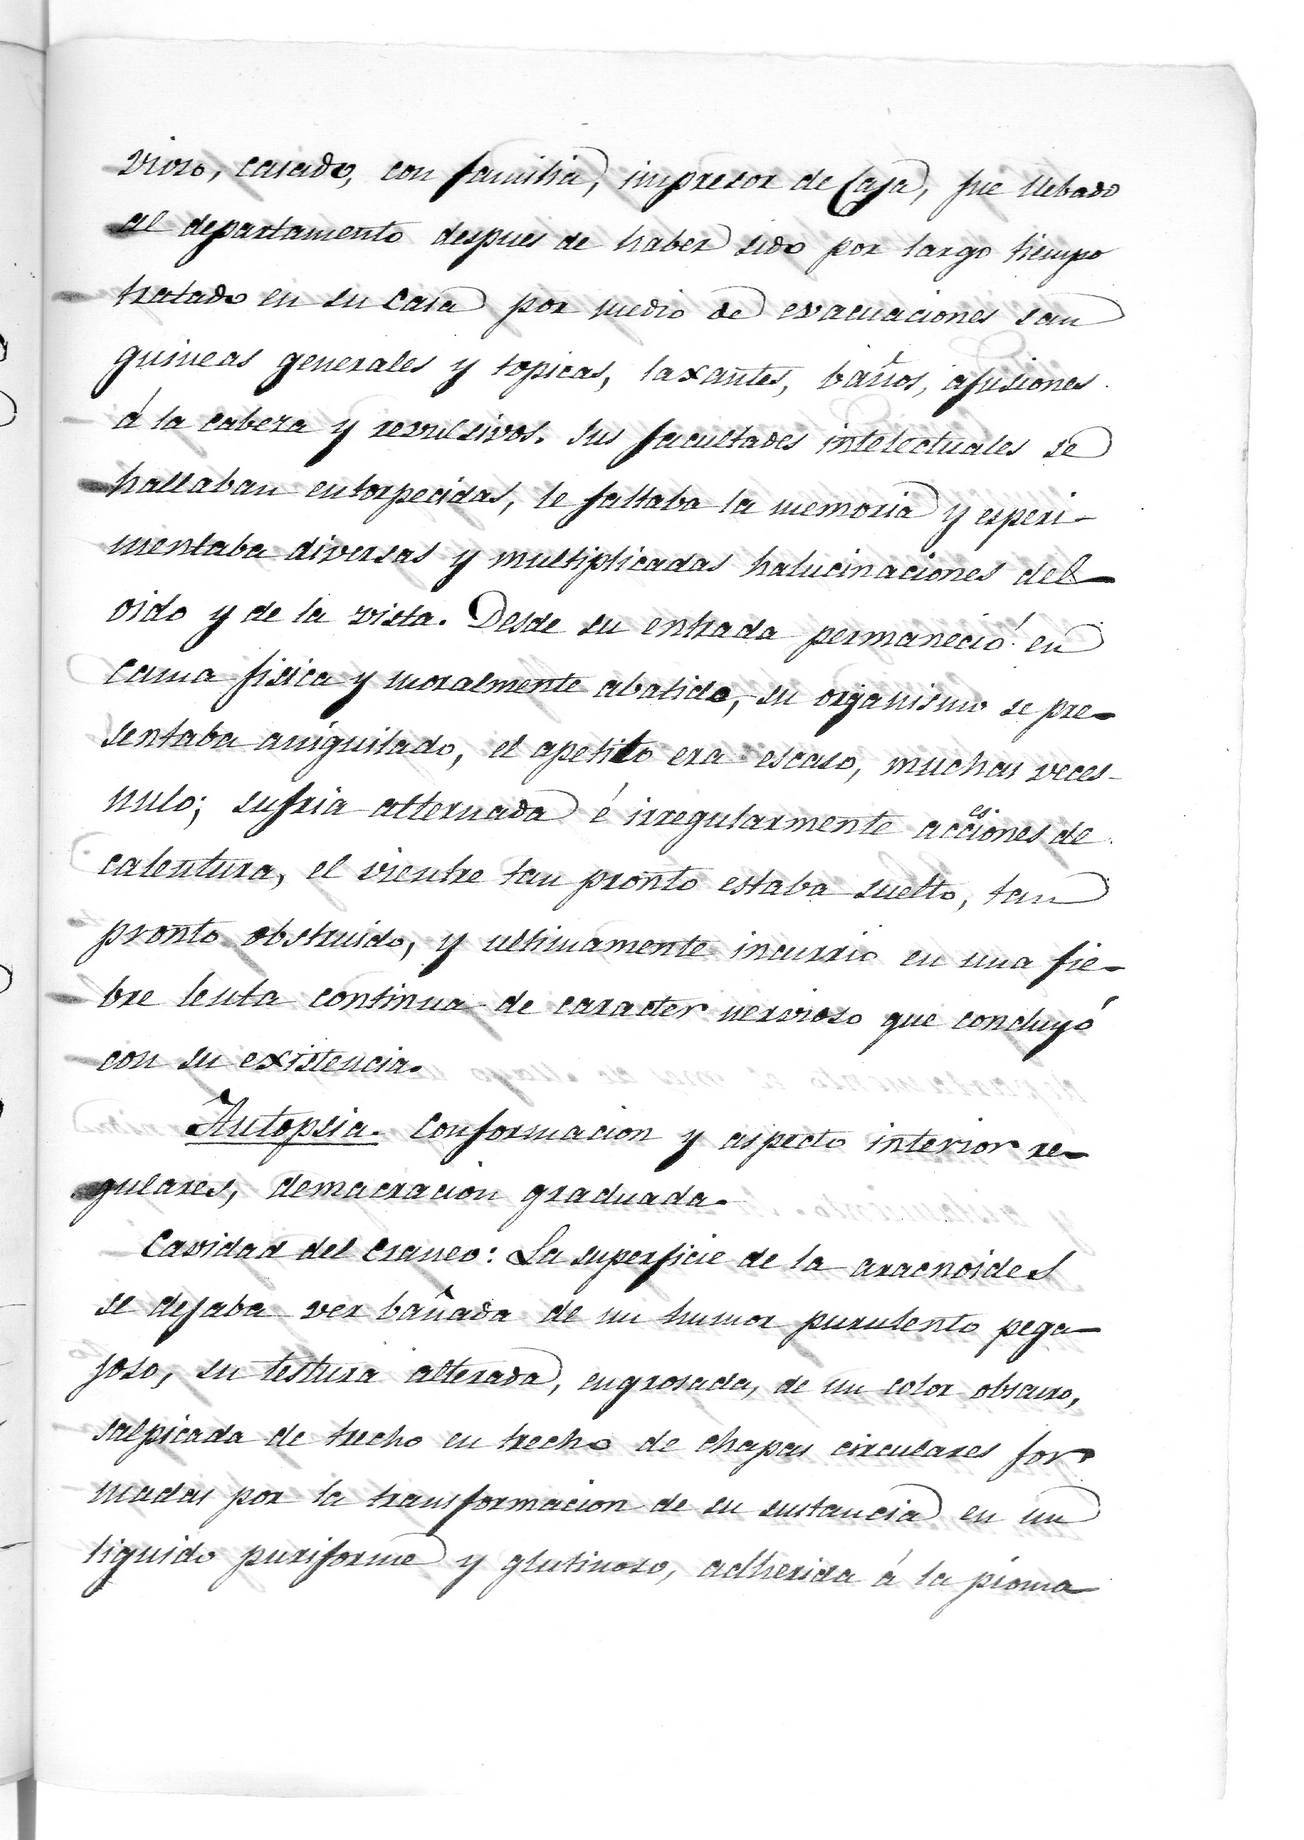 vioso, casado, con familia, impresor de Caja, fue llebado
al departamento despues de haber sido por largo tiempo
tratado en su casa por medio de evacuaciones san
guineas generales y topicas, laxantes, baños, afusiones
á la cabeza y revulsivos. Sus facultades intelectuales se
hallaban entorpecidas, le faltaba la memoria y esperi-
mentaba diversas y multiplicadas halucinaciones del
oido y de la vista. Desde su entrada permaneció en
cama fisica y moralmente abatido, su organismo se pre-
sentaba aniquilado, el apetito era escaso, muchas veces
nulo; sufria alternada é irregularmente acciones de
calentura, el vientre tan pronto estaba suelto, tan
pronto obstruido, y ultimamente incurrio en una fie-
bre lenta continua de caracter nervioso que concluyó
con su existencia.
Autopsia. Conformacion y aspecto interior re-
gulares, demacracion graduada.
Cavidad del craneo: La superficie de la aracnoides
se dejaba ver bañada de un humor purulento pega-
joso, su testura alterada, engrosada, de un color obscuro,
salpicada de trecho en trecho de chapas circulares for
madas por la transformacion de su sustancia en un
liquido puriforme y glutinoso, adherida á la piama